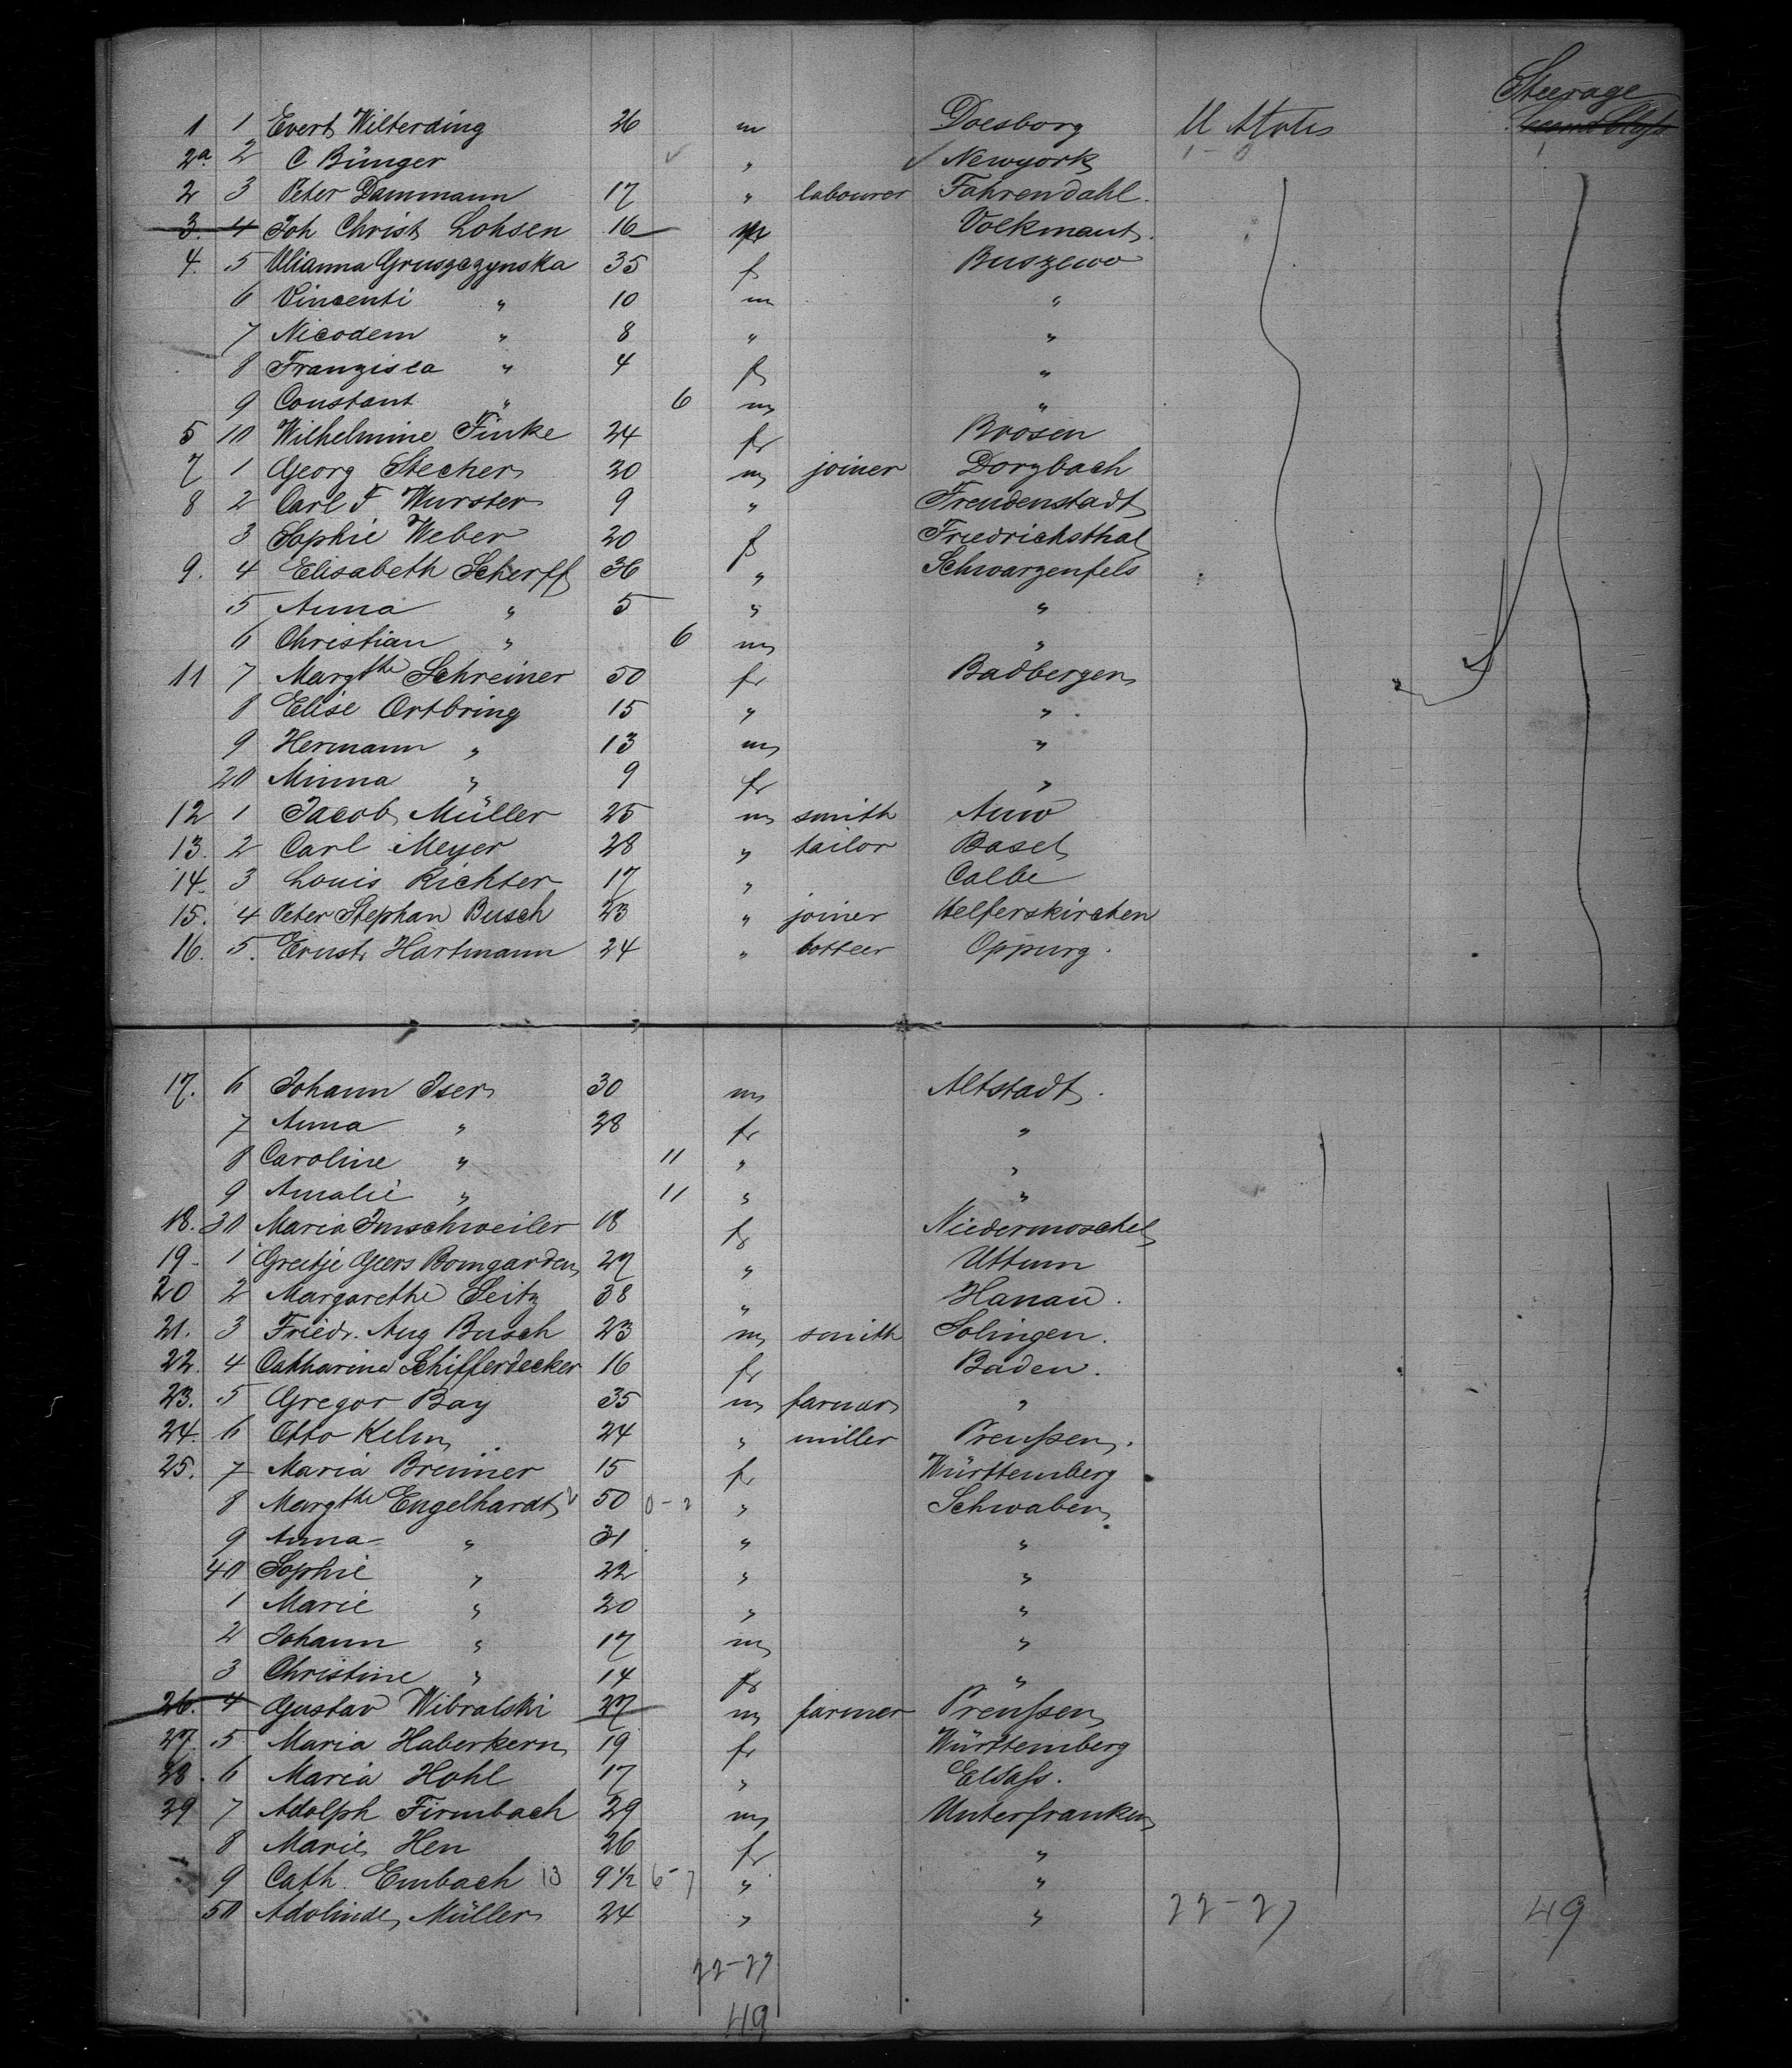 Steerage
1 1 Evert Wilterding 26 m Doesborg U States
2a. 2 C Bünger " Newyork
2 3 Peter Dammann 17 " labourer Fahrendahl.
3. 4 Joh Christ Lohsen 16 Volkmant.
4. 5 Gruszczynska 35 f Buszewo
6 Vincenti " 10 m "
7 Nicodem " 8 " "
8 Franzisca " 4 f "
9 Constant " 6 m "
5 10 Wilhelmine Finke 24 f Brosen
7 1 Georg Stecher 20 m joiner Dorzbach
8 2 Carl F Wurster 9 " Freudenstadt
3 Sophie Weber 20 f Friedrichsthal
9. 4 Elisabeth Scherff 36 " Schwarzenfels
5 Anna " 5 " "
6 Christian " 6 m "
11 7 Margthe Schreiner 50 f Badbergen
8 Elise Ortbring 15 " "
9 Hermann " 13 m "
20 Minna " 9 f "
12 1 Jacob Müller 25 m smith Auw
13. 2 Carl Meyer 28 " tailor Basel
14. 3 Louis Richter 17 " Calbe
15. 4 Peter Stephan Busch 23 " joiner Helferskirchen
16. 5. Ernst Hartmann 24 " Oppurg.
17. 6 Johann Iser 30 m Altstadt.
7 Anna " 28 f "
8 Caroline " 11 " "
9 Amalie " 11 " "
18. 30 Maria Imschweiler 18 f Niedermoschel
19. 1 Greetje Geers Bomgarden 27 " Uttum
20 2 Margarethe Seitz 38 " Hanau.
21. 3 Friedr. Aug Busch 23 m smith Solingen.
22. 4 Catharine Schifferdecker 16 f Baden.
23. 5 Gregor Bay 35 m farmer "
24. 6 Otto Kelm 24 " miller Preußen.
25. 7 Maria Brenner 15 f Württemberg
8 Margthe Engelhardt 50 0-2 " Schwaben
9 Anna " 31 " "
40 Sophie " 22 " "
1 Marie " 20 " "
2 Johann " 17 m "
3 Christine " 14 f "
26. 4 Gustav Wibralski 27 m farmer Preußen
27. 5 Maria Haberkern 19 f Württemberg
28. 6 Maria Hohl 17 " Elsaß.
29 7 Adolph Firmbach 29 m Unterfranken
8 Marie Hen 26 f "
9 Cath. Embach 13 9 1/2 6-7 " "
50 Adolinde Müller 24 " " 22-27 49
22-27
49